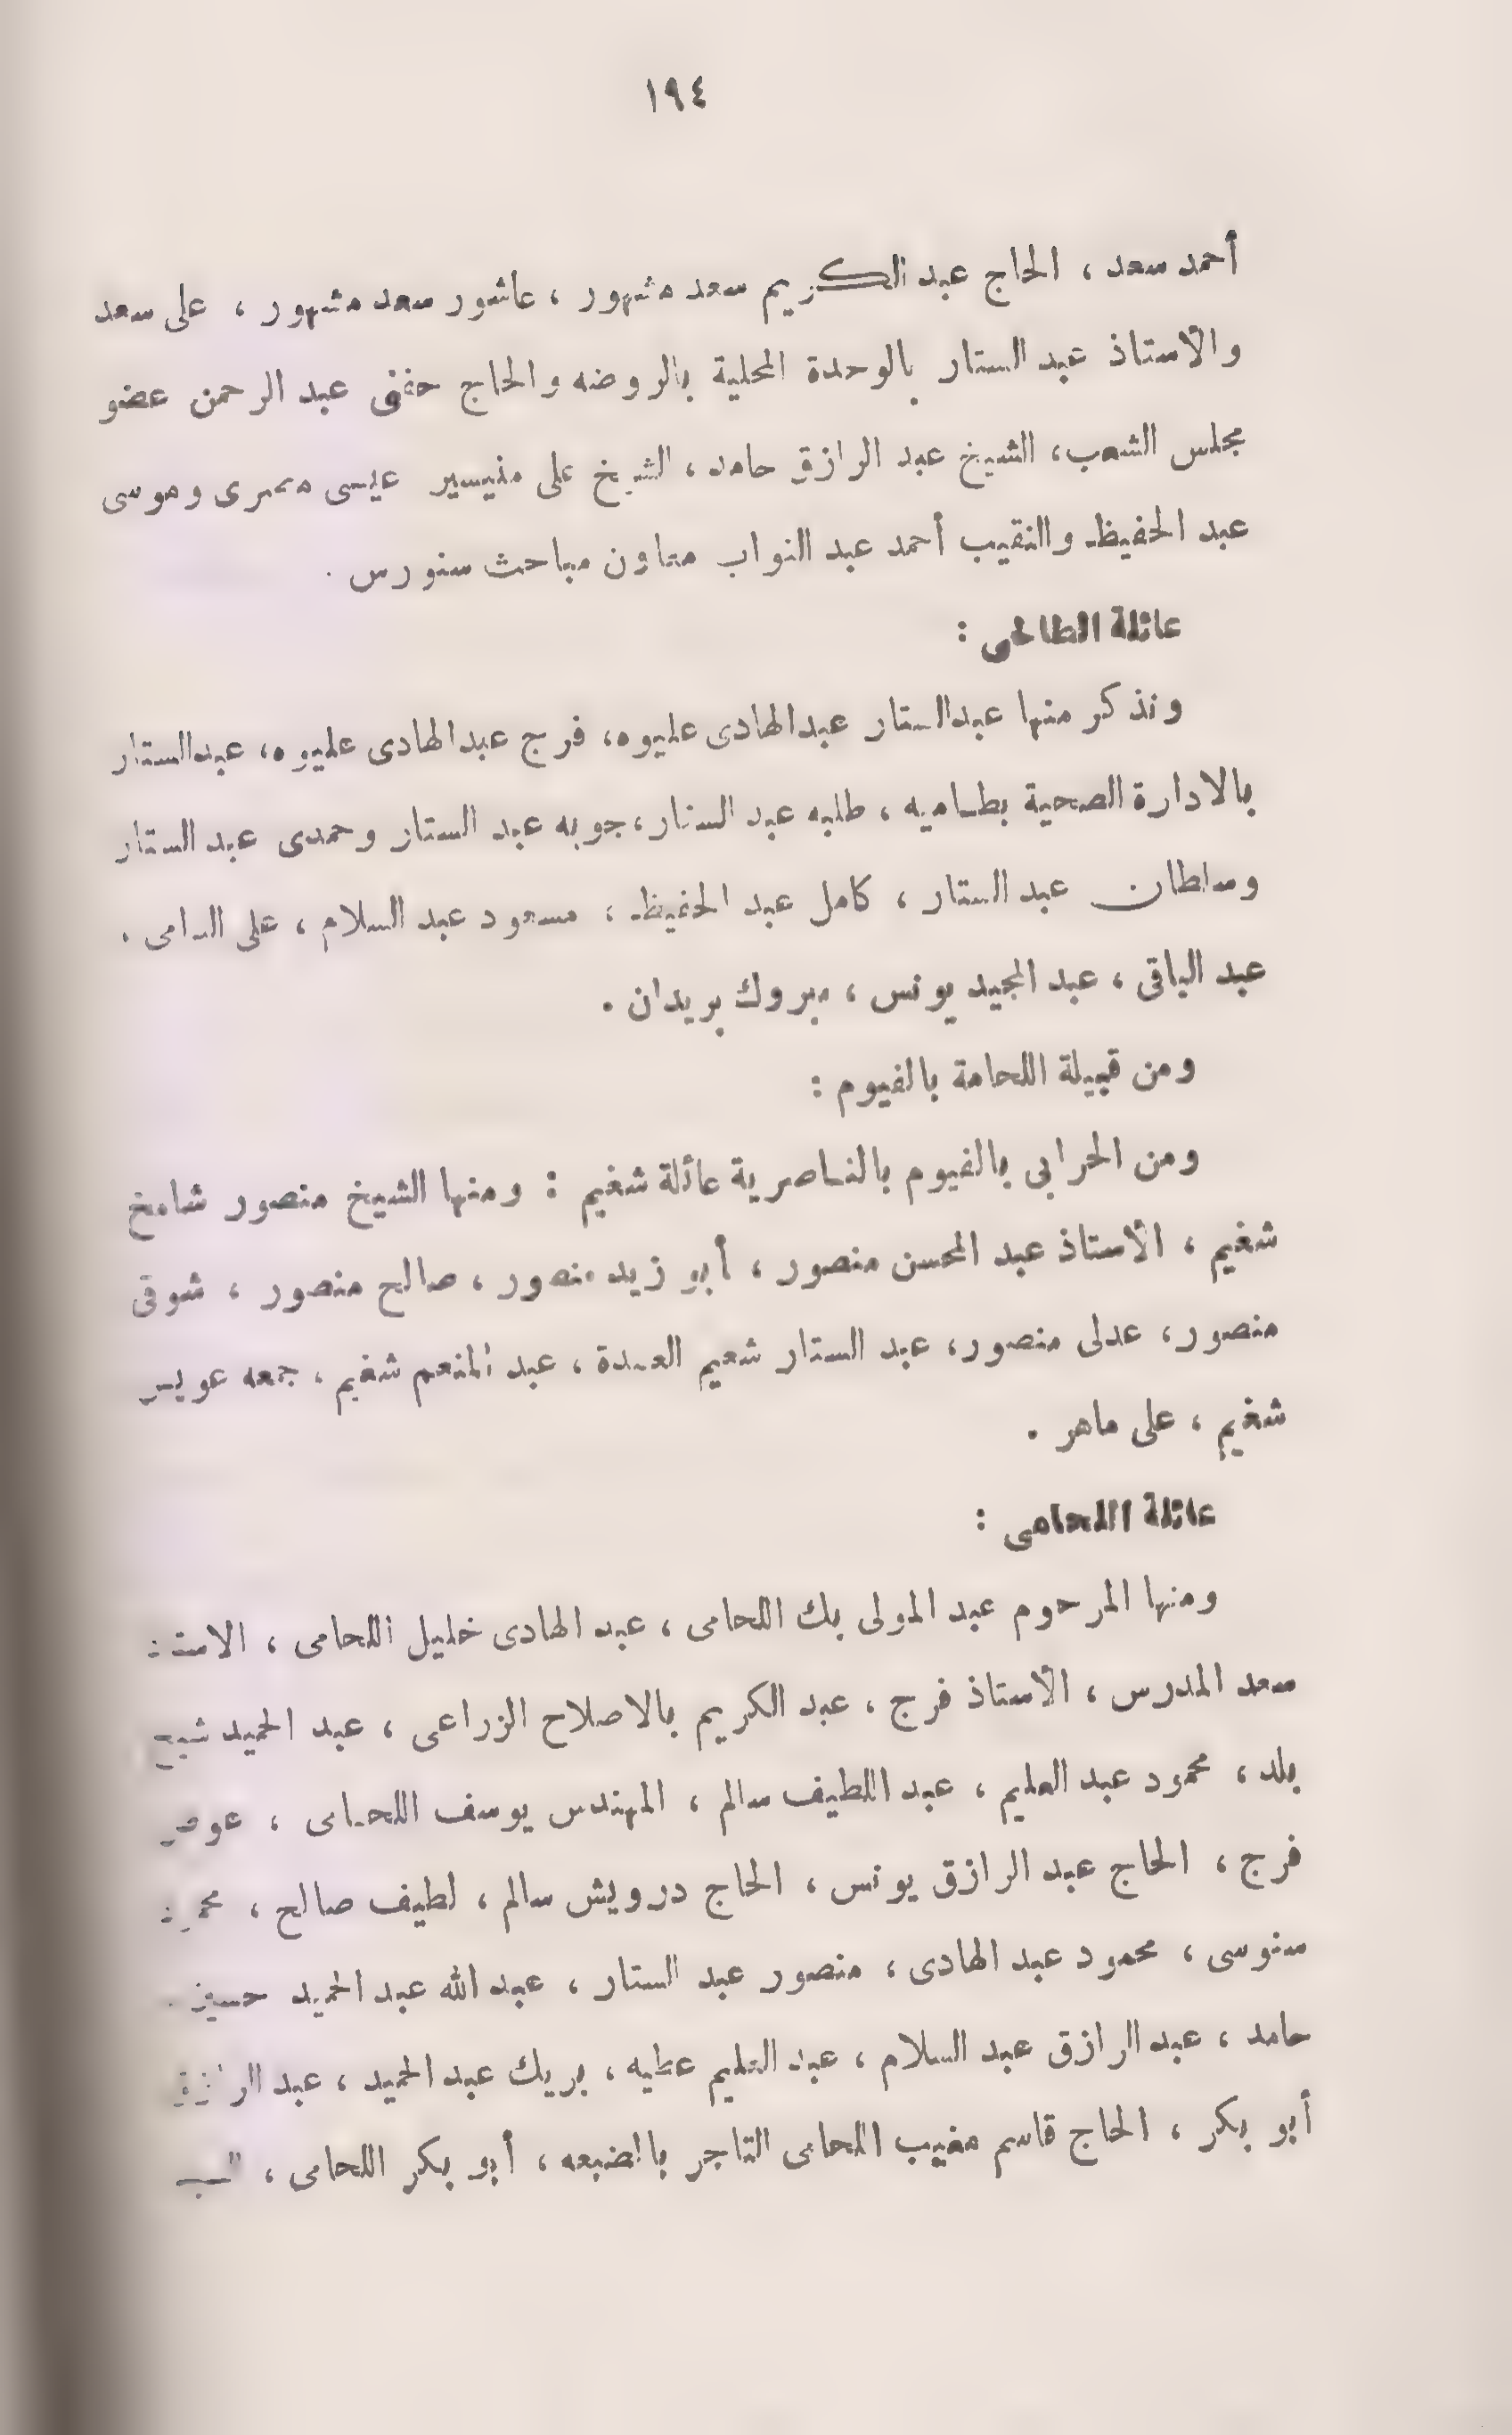 ١٩٤
أحمد سعد ، الحاج عبد الكريم سعد مشهور ، عاشور سعد مشهور ، على سعد
والأستاذ عبد الستار بالوحدة المحلية بالروضه والحاج حفنى عبد الرحمن عضو
مجلس الشعب، الشيخ عبد الرازق حامد ، الشيخ على منيسير عيسى مصرى وموسى
عبد الحفيظ والنقيب أحمد عبد النواب معاون مباحث سنورس .
عائلة الطالحى :
ونذكر منها عبدالستار عبدالهادى عليوه، فرج عبدالهادى عليوه، عبدالستار
بالادارة الصحية بطاميه ، طلبه عبد الستار ، جوبه عبد الستار وحمدى عبد الستار
وسلطان عبد الستار ، كامل عبد الحفيظ ، مسعود عبد السلام ، على .
عبد الباقى ، عبد المجيد يونس ، مبروك بريدان .
ومن قبيلة اللحامة بالفيوم :
ومن الحرابى بالفيوم بالناصرية عائلة شغيم : ومنها الشيخ منصور شامخ
شغيم ، الأستاذ عبد المحسن منصور ، أبو زيد منصور ، صالح منصور ، شوقى
منصور، عدلى منصور، عبد الستار شعيم العمدة ، عبد المنعم شغيم ، جمعه عويس
شغيم ، على ماهر .
عائلة اللحامى :
ومنها المرحوم عبد المولى بك اللحامى ، عبد الهادى خليل اللحامى ،
سعد المدرس ، الأستاذ فرج ، عبد الكريم بالاصلاح الزراعى ، عبد الحميد شيخ
بلد ، محمود عبد العليم ، عبد اللطيف سالم ، المهندس يوسف اللحامى ،
فرج ، الحاج عبد الرازق يونس ، الحاج درويش سالم ، لطيف صالح ،
سنوسى ، محمود عبد الهادى ، منصور عبد الستار ، عبد الله عبد الحميد
حامد ، عبد الرازق عبد السلام ، عبد العليم عطيه ، بريك عبد الحميد ، عبد الرازق
أبو بكر ، الحاج قاسم مغيب اللحامى التاجر بالضبعه ، أبو بكر اللحامى ،